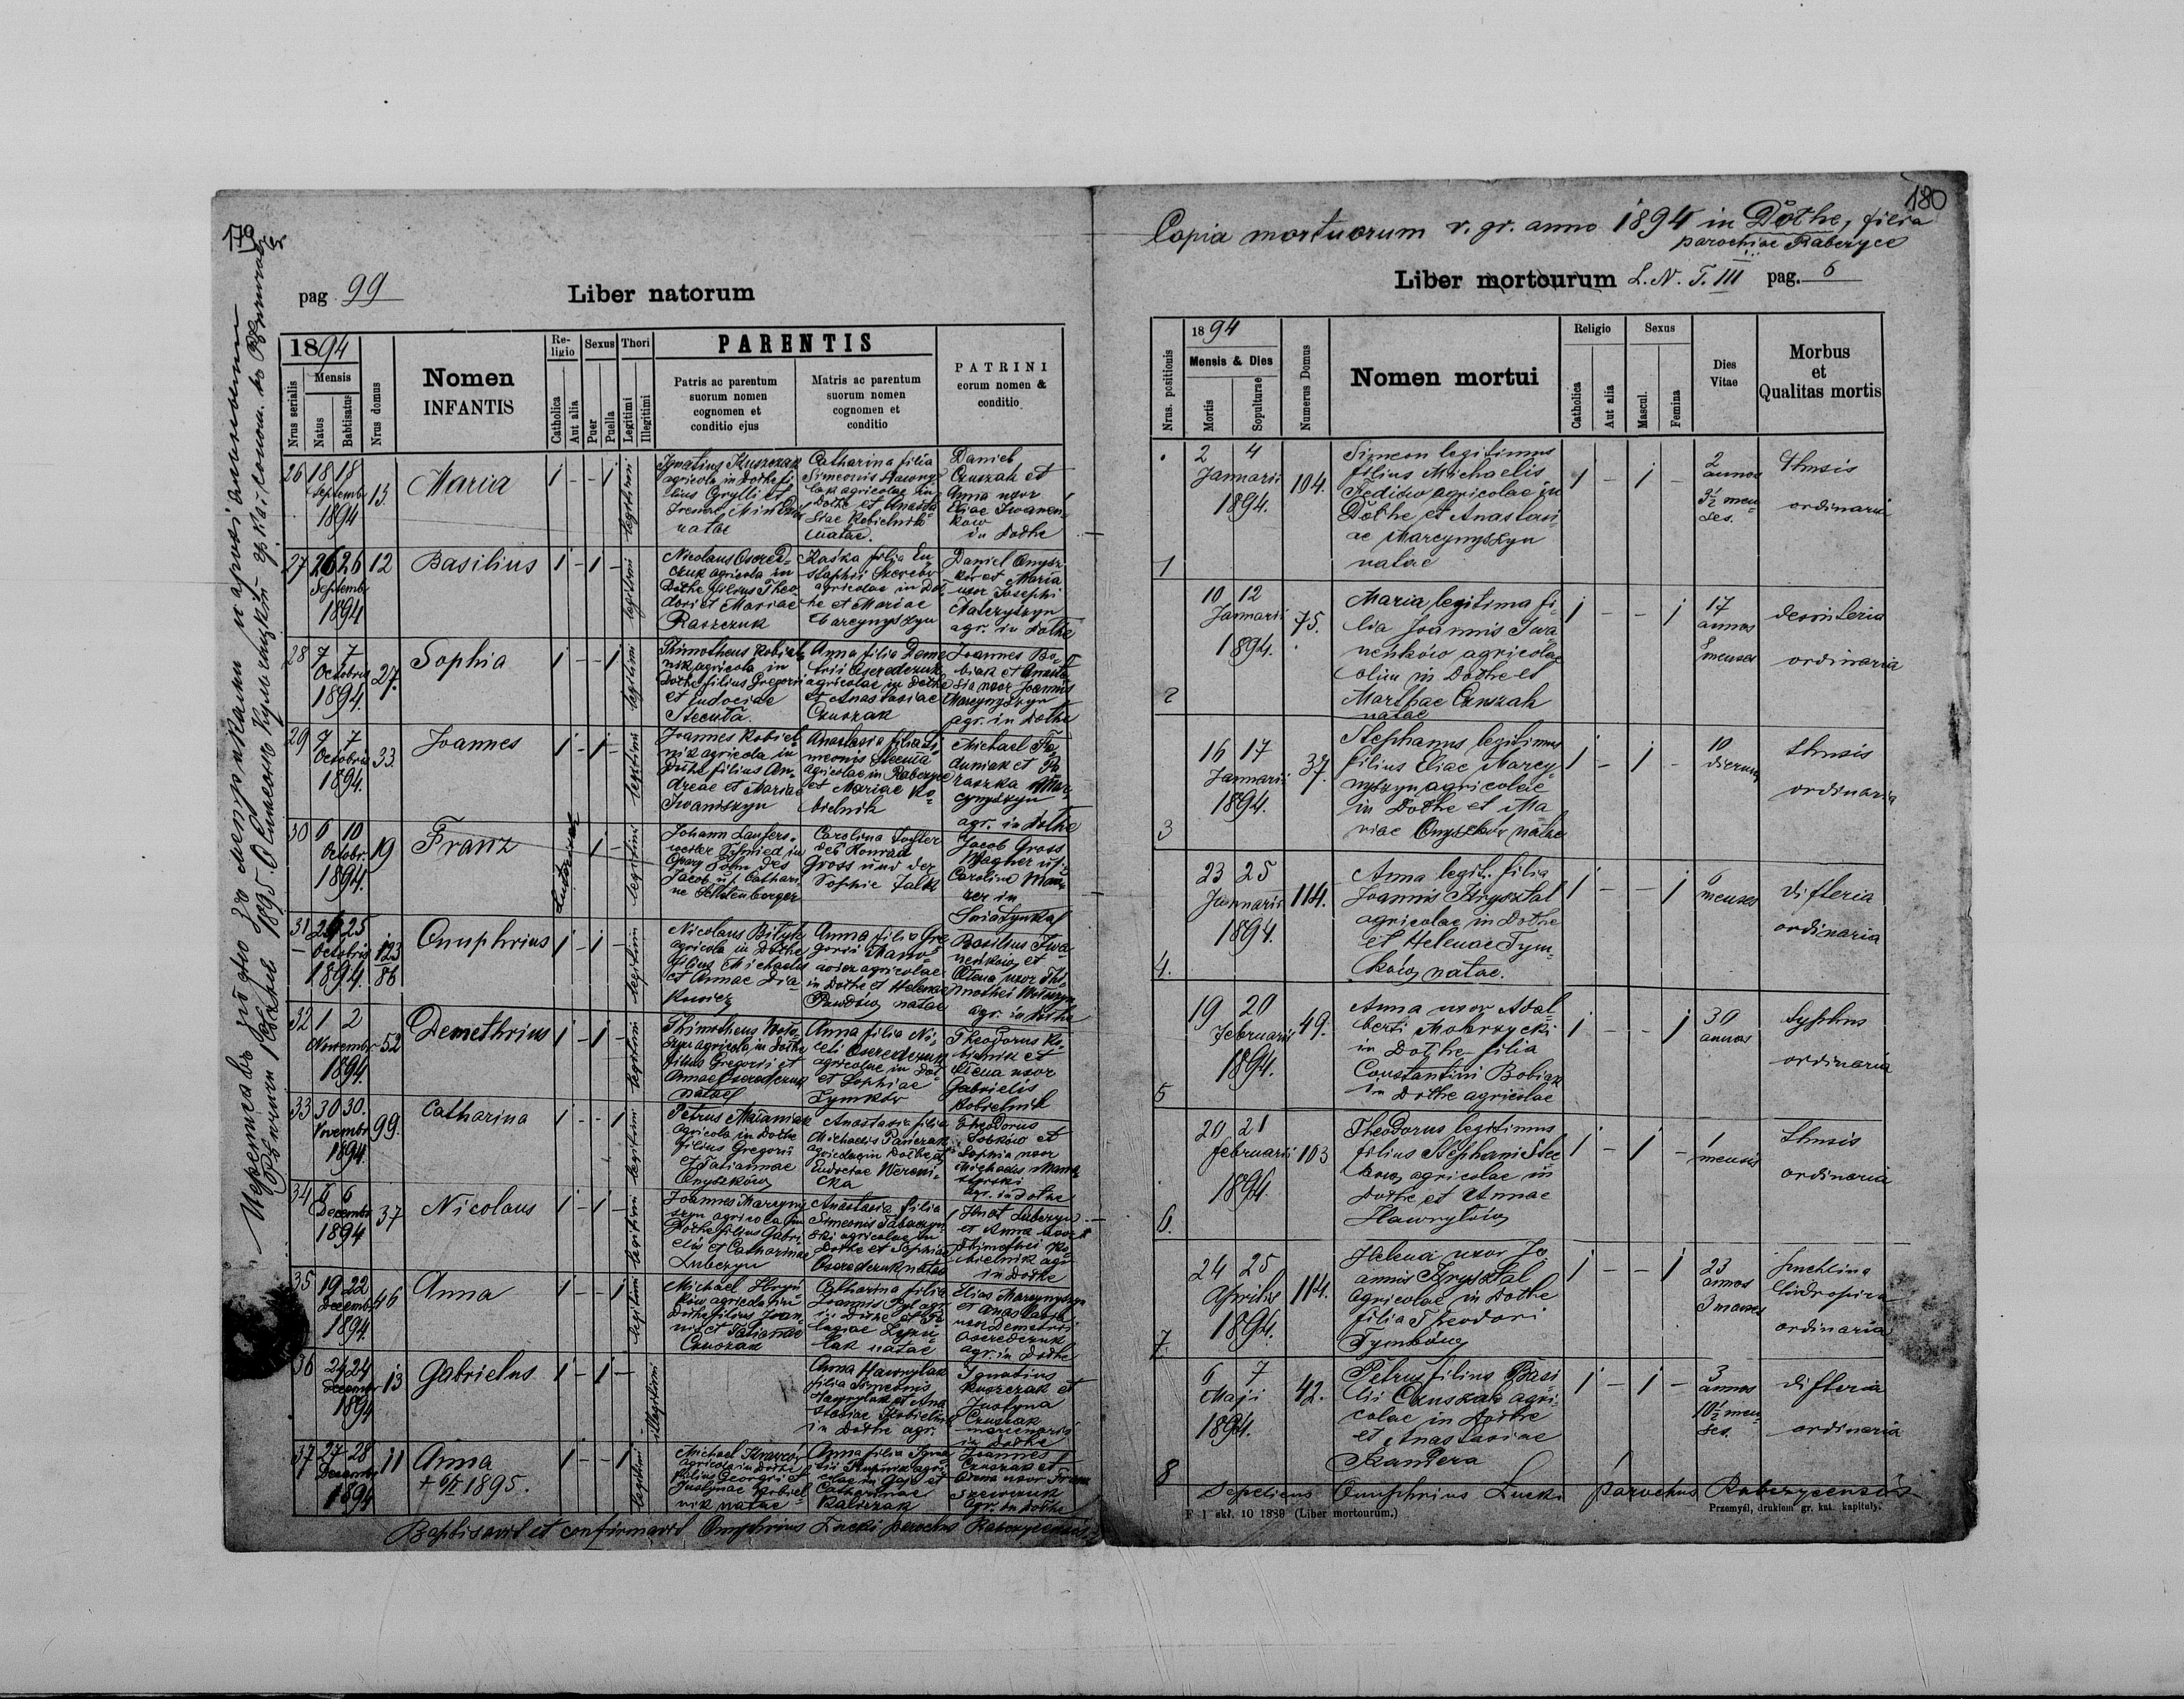 179
pag 99
Liber natorum
1894
Nrus serialis
Mensis
Natus
Babtisatus
Nrus domus
Nomen
INFANTIS
Re-
ligio
Catholica
Aut alia
Sexus
Puer
Puella
Thori
Legitimi
Illegitimi
PARENTIS
Patris ac parentum
suorum nomen
cognomen et
conditio ejus
Matris ac parentum
suorum nomen
cognomen et
conditio
PATRINI
eorum nomen &
conditio
26 18 18
Septemb
1894
13.
Maria
1 - - 1
legitimi
Ignatius Kuszczak
agricola in Dothe fi-
lius Cyrilli et
natae
Catharina filia
Simeonis Hawry-
lak agricolae in
Dothe et Anasta-
siae Kobielnik
natae.
Daniel
Czuszak et
Anna uxor
Eliae Iwanen-
ków
in Dothe
27 26 26
Septemb
1894
12
Basilius
1 - 1 -
legitimi
Nicolaus Osered-
czuk agricola in
Dothe filius Theo-
dori et Mariae
Raszczuk
Kaśka filia Eu-
staphii
agricolae in Dot-
he et Mariae
Marcynyszyn
Daniel Onysz-
kov et Maria
uxor Josephi
Malczyszyn
agr. in Dothe
28 7 7
Octobris
1894.
27.
Sophia
1 - - 1
legitimi
Thimotheus Kobiel-
nik agricola in
Dothe filius Gregorii
et Eudociae
Stecuła.
Anna filia Deme-
trii Oseredczuk
agricolae in Dothe
et Anastasiae
Czuszak
Joannes Bo-
biak et Anasta-
sia uxor Joannis
Marcynyszyn
agr. in Dothe
29 7 7
Octobris
1894.
33.
Joannes
1 - 1 -
legitimi
Joannes Kobiel-
nik agricola in
Dothe filius An-
dreae et Mariae
Iwaniszyn
Anastasia filia Si-
meonis Stecuła
agricolae in Raberyce
et Mariae Ko-
bielnik
Michael
et Pa-
raszka Mar-
cynyszyn
agr. in Dothe
30 6 10
Octobr.
1894.
19
Franz
Lutericae
1
legitimi
Johann Laufers-
weiler Schmied in
Sohn des
Jacob u. Cathari-
ne
Carolina Tochter
des Konrad
Gross und der
Sophie Falk
Jacob Gross
Wagner u.
Caroline Mau-
rer in
31 25
Octobris
1894.
123
86
Onuphrius
1 - 1 -
legitimi
Nicolaus Bilyk
agricola in Dothe
filius Michaelis
et Annae Dia-
kowicz
Anna filia Gre-
gorii
agricolae
in Dothe et Helenae
natae
Basilius Iwa-
neńków et
Olena uxor Thi-
mothei
agr. in Dothe
32 1 2
Novembr
1894.
52
Demethrius
1 - 1 -
legitimi
Thimotheus
agricola in Dothe
filius Gregorii et
Annae Oseredczuk
natae
Anna filia Ni-
ceti Oseredczuk
agricolae in Dot
et Sophiae
Tymków
Theodorus Ko-
bielnik et
Elena uxor
Gabrielis
Kobielnik
33 30 30.
Novembr
1894.
99.
Catharina
1 - - 1
legitimi
Petrus
agricola in Dothe
filius Gregorii
et Tatiannae
Onyszków
Anastasia filia
Michaelis Pańczak
agricolae in Dothe et
Eudociae Weremi-
cka
Theodorus
et
Sophia uxor
Michaelis
agr. in Dothe
34 6 6
Decembr
1894
37
Nicolaus
1 - 1 -
legitimi
Joannes Marcyny-
szyn agricola in
Dothe filius Gabri-
elis et Catharinae
Luberzyn
Anastasia filia
Simeonis
agricolae in
Dothe et Sophiae
Oseredczuk natae
Ihnat Luberzyn
et Anna uxor
Thimothei Ko-
bielnik agr.
in Dothe
35 19 22
Decembr
1894.
46
Anna
1 - - 1
legitimi
Michael Hryń-
ków agricola in
Dothe filius Joan-
nis et Tatiannae
Czuszak
Catharina filia
Joannis Pyl agr.
in Dothe et Pe-
lagiae
natae
Elias Marcynyszyn
et Anastasia
uxor Demetrii
Oseredczuk
agr. in Dothe
36 24 24
Decembr
1894
13
Gabrielus
1 - 1 -
illegitimi
Anna Hawrylak
filia Simeonis
Hawrylak et Ana-
stasiae Kobielnik
in Dothe agr.
Ignatius
Kuszczak et
Justyna
Czuszak
in Dothe
37 27 28
Decembr
1894
11
Anna
1895.
1 - - 1
legitimi
Michael
agricola in Dothe
filius Georgii et
Justynae Kobiel-
nik natae
Anna filia
agri-
colae in et
Catharinae
Joannes
Czuszak et
uxor
agr. in Dothe
Baptisavit et confirmavit Onuphrius Łucki parochus Raberycensis
180
Copia mortuorum r. gr. anno 1894 in Dothe, filia
parochiae Raberyce
Liber mortourum L. N. T. III pag. 6
Nrus. positionis
1894
Mensis & Dies
Mortis
Sopulturae
Numerus Domus
Nomen mortui
Religio
Catholica
Aut alia
Sexus
Mascul.
Femina
Dies
Vitae
Morbus
et
Qualitas mortis
1
2 4
Januarii
1894.
104.
Simeon legitimus
filius Michaelis
Fedików agricolae in
Dothe et Anastasi-
ae Marcynyszyn
natae
1 - 1 -
2
annos
9½ men-
ses.
thusis
ordinaria
2
10 12
Januarii
1894.
75.
Maria, legitima fi-
lia Joannis Iwa-
neńków agricolae
olim in Dothe et
Marthae Czuszak
natae
1 - - 1
17
annos
8
menses
desinteria
ordinaria
3
16 17
Januarii
1894.
37.
Stephanus legitimus
filius Eliae Marcy-
nyszyn agricolae
in Dothe et Ma-
riae Onyszkov natae
1 - 1 -
10
dierum
thusis
ordinaria
4.
23 25
Januarii
1894.
114.
Anna legit. filia
Joannis Krysztal
agricolae in Dothe
et Helenae Tym-
ków natae.
1 - - 1
6
menses
difteria
ordinaria
5
19 20
Februarii
1894.
49.
Anna uxor Adal-
berti Mokrzycki
in Dothe filia
Constantini Bobiak
in Dothe agricolae
1 - - 1
30
annos
typhus
ordinaria
6.
20 21
Februarii
1894.
103
Theodorus legitimus
filius Stephani Stec-
ków, agricolae in
Dothe et Annae
Hawryłów
1 - 1 -
1
mensis
thusis
ordinaria
7.
24 25
Aprilis
1894.
114.
Helena uxor Jo-
annis Krysztal
agricolae in Dothe
filia Theodori
Tymków
1 - - 1
23
annos
3 menses
puchlina
hidropica
ordinaria
8
6 7
Maji
1894.
42.
Petrus filius Basi-
lii Czuszak agri-
colae in Dothe
et Anastasiae
Kandera
1 - 1 -
3
annos
10½ men-
ses.
difteria
ordinaria
Sepeliens Onuphrius Łucki parochus Raberycensis
F 1 skł. 10 1889 (Liber mortourum.)
Przemyśl, drukiem gr. kat. kapituły.